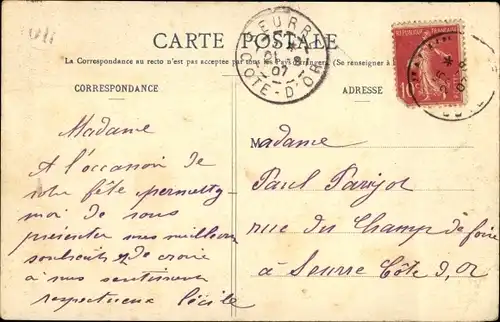 CARTE POSTALE
La Correspondance au recto n'est pas acceptée par tous les Pays étrangers. (Se renseigner à
CORRESPONDANCE
ADRESSE
SEURRE
07
COTE-D'OR
REPUBLIQUE FRANCAISE
10
Madame
A l'occasion de
votre fête permettez
moi de vous
présenter mes meilleurs
souhaits & de croire
à mes sentiments
respectueux Cécile
Madame
Paul Parizot
rue du Champ de foire
à Seurre Côte d'Or